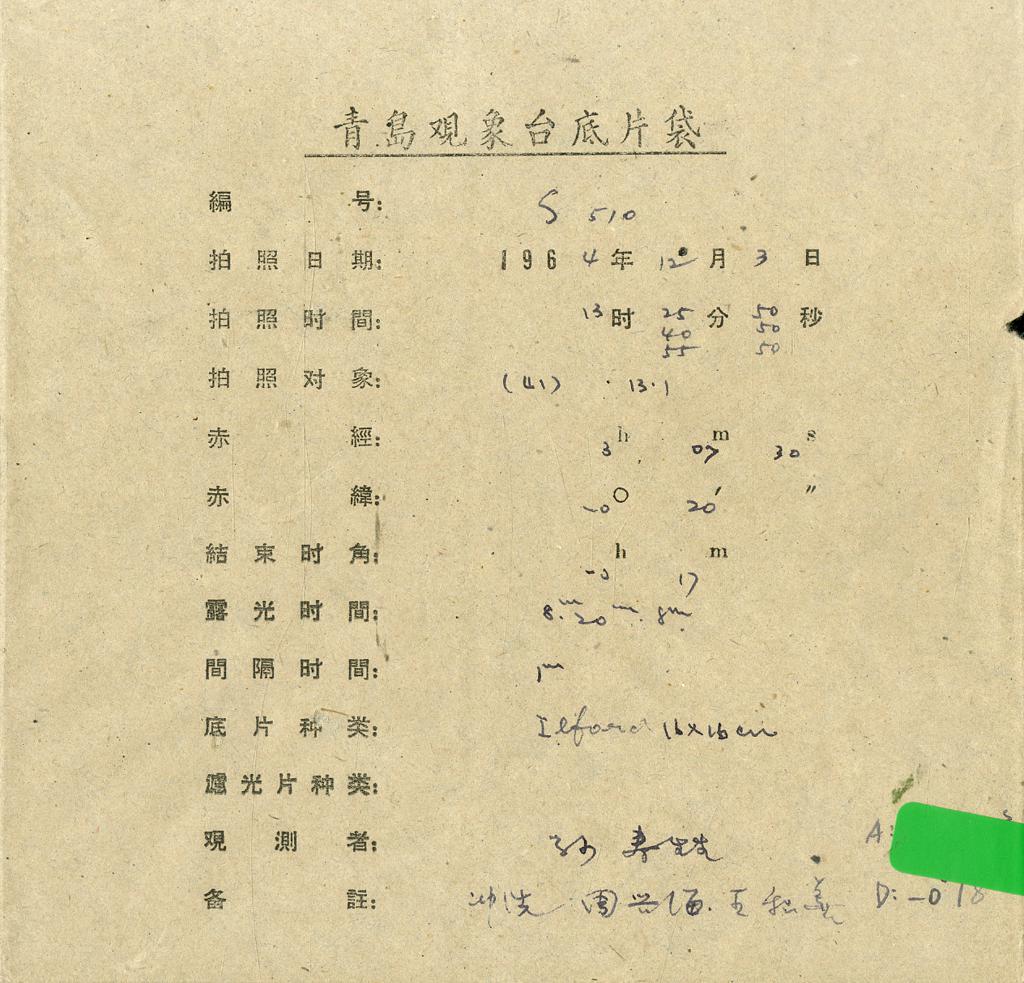 青島观象台底片袋
編号: S 510
拍照日期: 1964年12月3日
拍照时間: 13时25分50秒
40 50
55 50
拍照对象: (41) 13.1
赤經: 3h 07m 30s
赤緯: -0° 20′ ″
結束时角: -0h 17m
露光时間: 8m. 20m. 8m
間隔时間: 1m
底片种类: Ilford 16x16cm
濾光片种类:
观測者: 孙寿
A: s
备註: 冲洗 周兴海. 王 D: -0 18